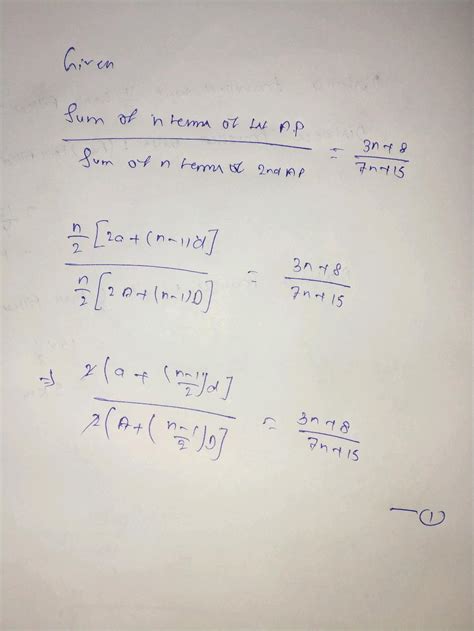 Given
Sum of n terms of 1st AP / Sum of n terms of 2nd AP = 3n+8 / 7n+15
n/2 [2a+(n-1)d] / n/2 [2A+(n-1)D] = 3n+8 / 7n+15
⇒ 2(a + (n-1/2)d] / 2(A+(n-1/2)D] = 3n+8 / 7n+15
— ①